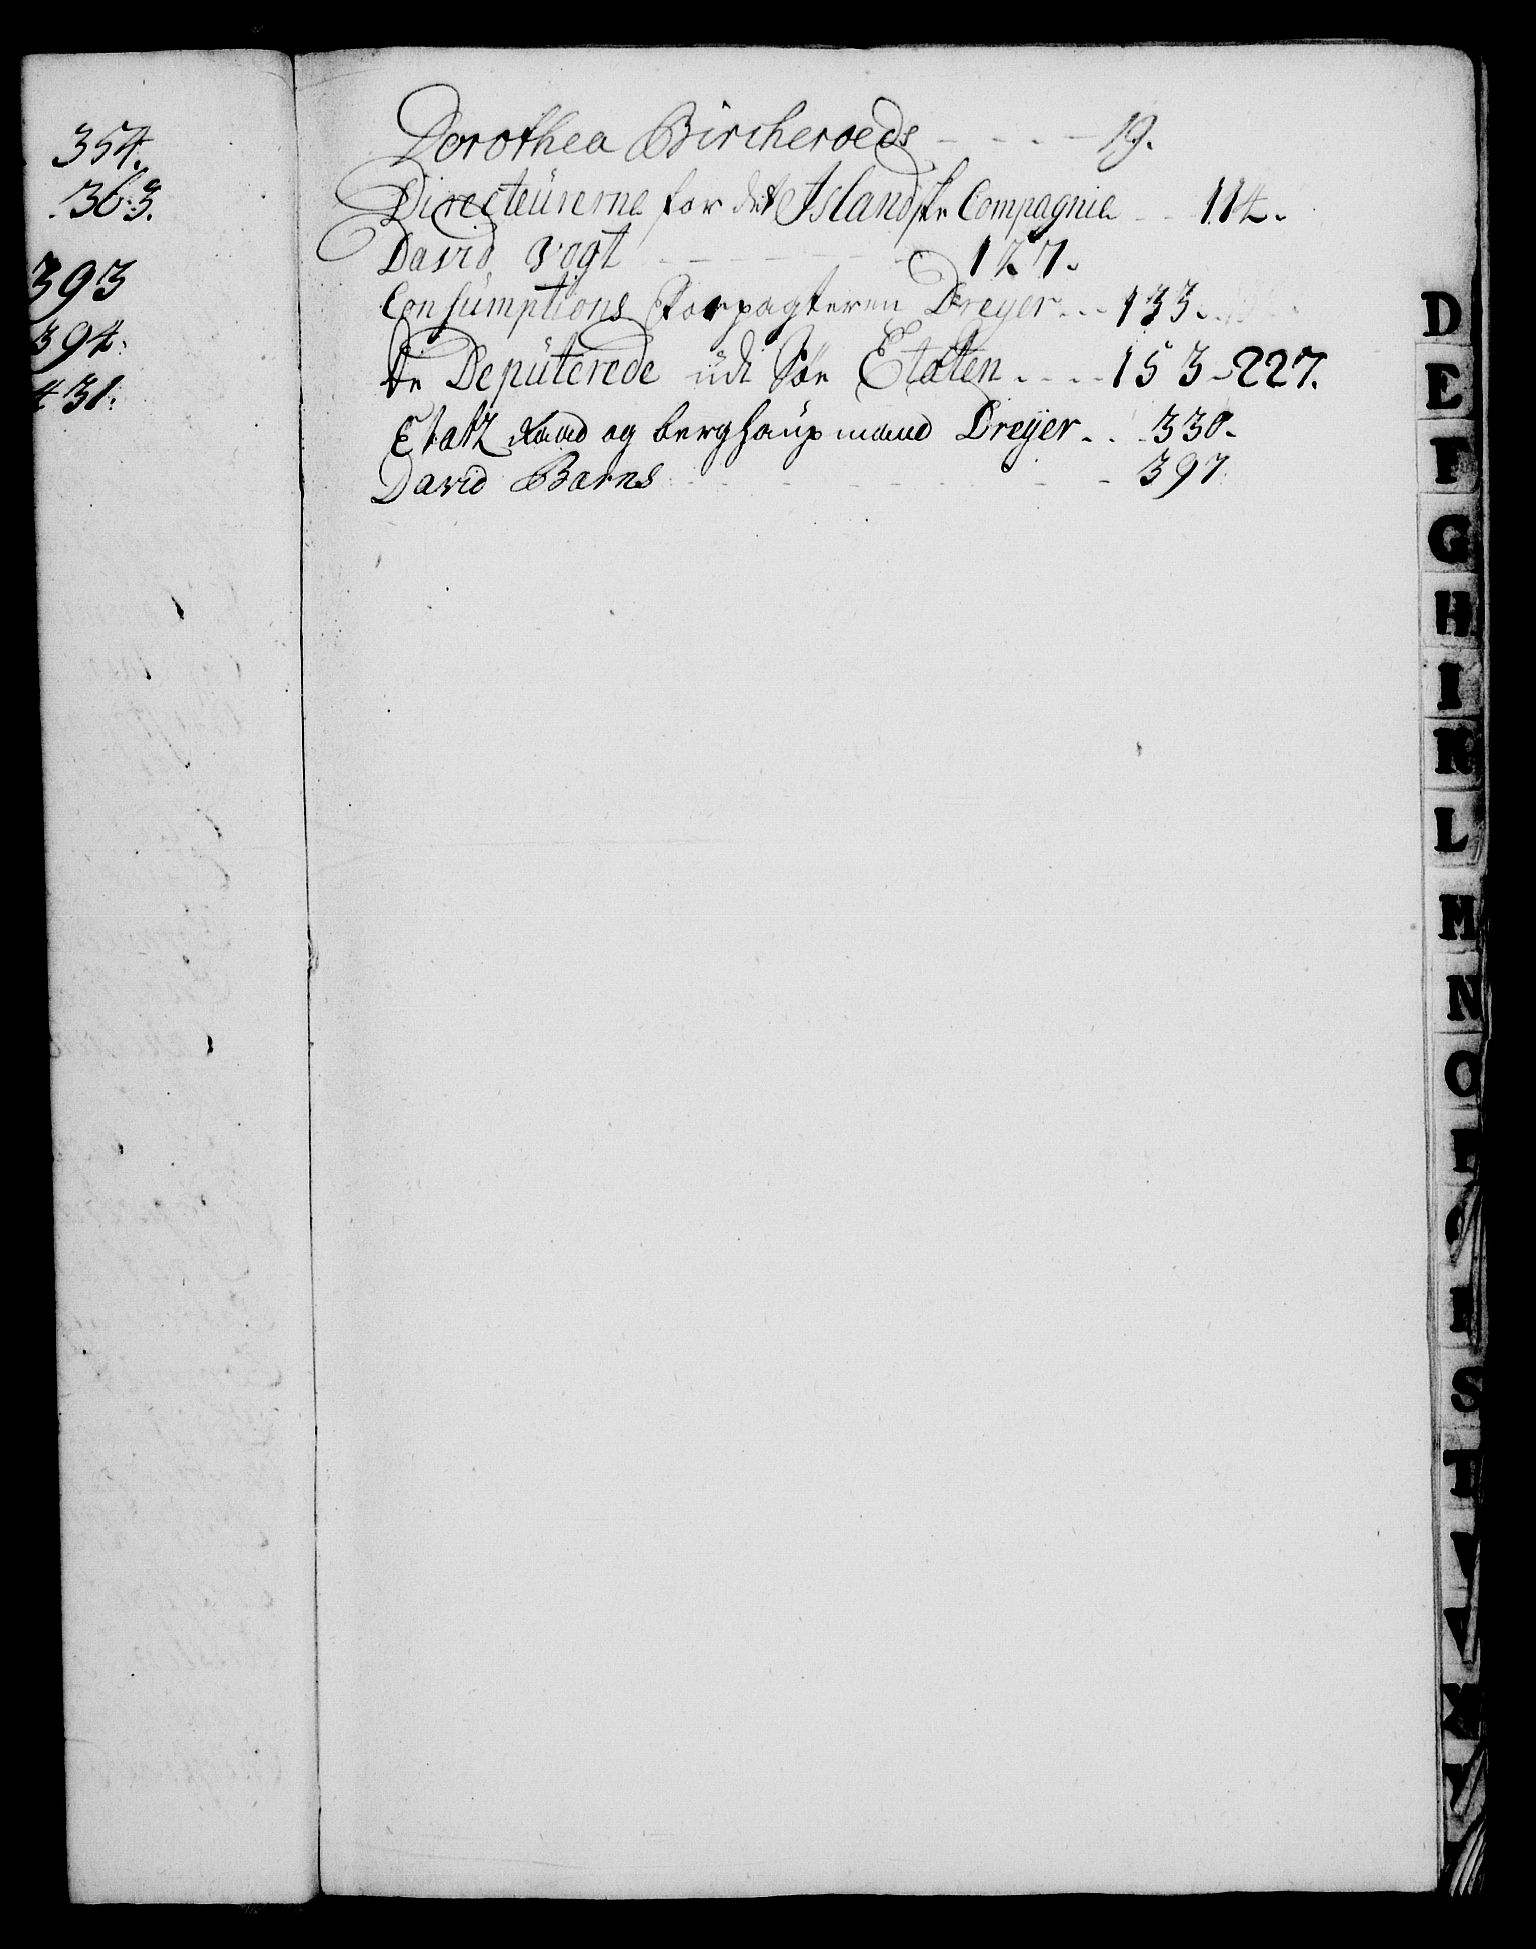 354.
363.
393
394.
431.
Dorothea Bircheroeds - - - - 19.
Directeürerne for det Islandske Compagnie - - 114.
David Vogt - - - - - - - 127.
Consümptions Forpagteren Dreyer . . - 133.
de Depüterede üdi Söe Etaten . . . - 153 - 227.
Etatz Raad og berghaupmand Dreÿer . . . 330.
David Barns - - - - - - - 397.
D
E
F
G
H
I
K
L
M
N
O
P
Q
R
S
T
V
X
Y